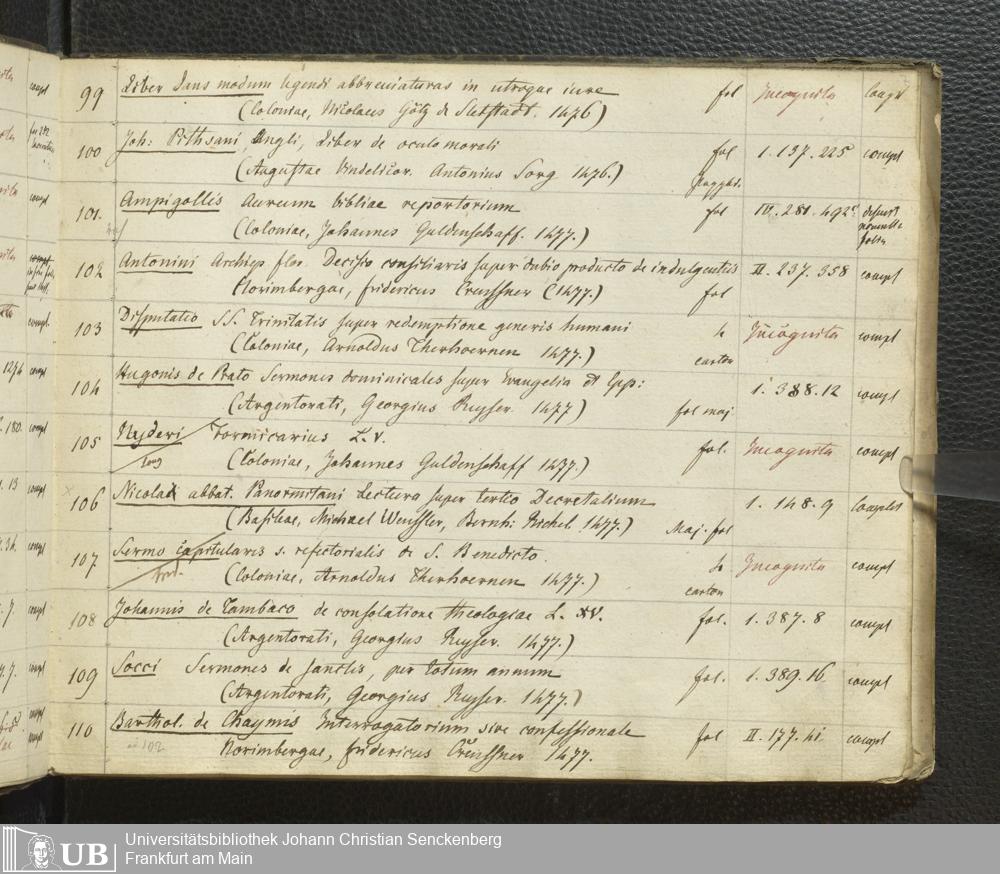 99 Liber dans modum legendi abbreviaturas in utroque iure fol Incognita compl
(Coloniae, Nicolaus Götz de Sletstadt. 1476)
100 Joh: Pithsani, Angli, Liber de oculo morali fol 1.137.225 compl
(Augustae Vindelicor. Antonius Sorg 1476.)
101. Ampigollis Aureum bibliae repertorium fol IV.281.492 desunt nonnulla folia
(Coloniae, Johannes Guldenschaff. 1477.)
102 Antonini Archiep flor. Decisio consiliaris super dubio producto de indulgentiis II.237.358 compl
Norimbergae, fridericus Creussner (1477.) fol
103 Disputatio SS. Trinitatis super redemptione generis humani 4 Incognita compl
(Coloniae, Arnoldus Therhoernen 1477.) carton
104 Hugonis de Prato Sermones dominicales super Evangelia et Epp: 1.388.12 compl
(Argentorati, Georgius Reyser. 1477) fol maj
105 Nyderi Formicarius L.V. fol. Incognita compl
(Coloniae, Johannes Guldenschaff 1477.)
106 Nicolai abbat. Panormitani Lectura super tertio Decretalium 1.148.9 Complet
(Basileae, Michael Wenssler, Bernh: Richel. 1477.) Maj. fol
107 Sermo capitularis s. refectorialis de S. Benedicto 4 Incognita compl
(Coloniae, Arnoldus Therhoernen 1477.) carton
108 Johannis de Tambaco de consolatione theologiae L. XV. fol. 1.387.8 compl
(Argentorati, Georgius Reyser. 1477.)
109 Socci Sermones de sanctis, per totum annum fol. 1.389.16 compl
(Argentorati, Georgius Reyser. 1477.)
110 Barthol. de Chaymis Interrogatorium sive confessionale fol II.177.41 compl
Norimbergae, fridericus Creussner 1477.
UB Universitätsbibliothek Johann Christian Senckenberg
Frankfurt am Main